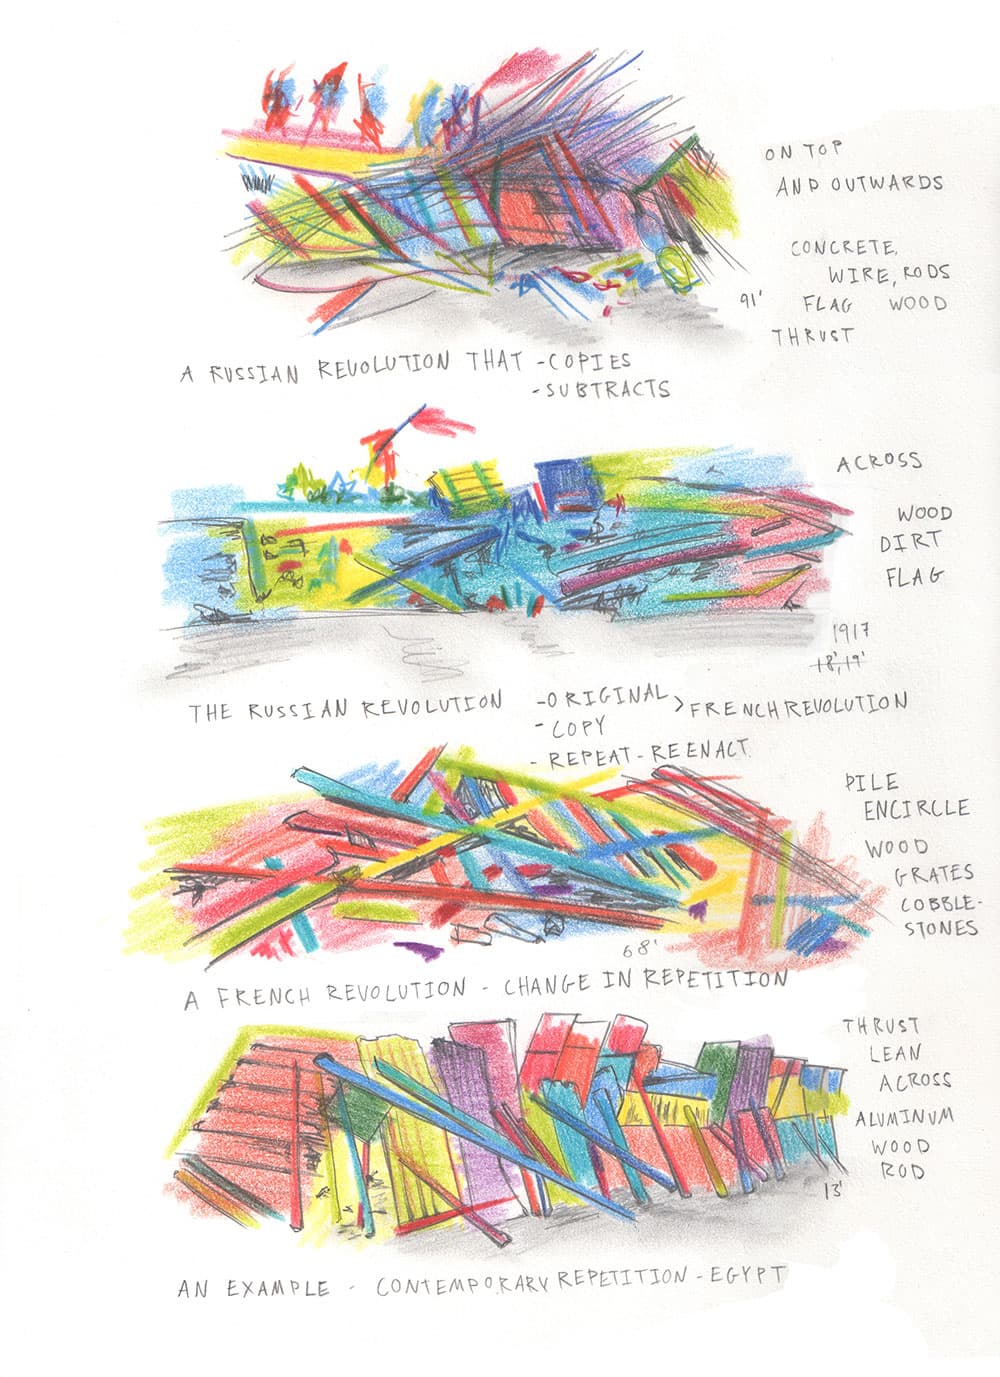 ON TOP
AND OUTWARDS
CONCRETE,
WIRE, RODS
91' FLAG WOOD
THRUST
A RUSSIAN REVOLUTION THAT - COPIES
- SUBTRACTS
ACROSS
WOOD
DIRT
FLAG
1917
18', 19'
THE RUSSIAN REVOLUTION - ORIGINAL > FRENCH REVOLUTION
- COPY
- REPEAT - REENACT
PILE
ENCIRCLE
WOOD
GRATES
COBBLE-
STONES
68'
A FRENCH REVOLUTION - CHANGE IN REPETITION
THRUST
LEAN
ACROSS
ALUMINUM
WOOD
ROD
13'
AN EXAMPLE - CONTEMPORARY REPETITION - EGYPT